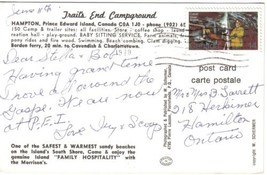 June 8th
Trails End Campground
HAMPTON, Prince Edward Island, Canada C0A 1J0 - phone (902) 6
(50 Camp & trailer sites: all facilities) Store / coffee shop
reation hall - play-ground, BABY SITTING SERVICE, Farm animals,
pony rides and fire wood. Swimming, Beach combing, Clam digging.
Borden ferry, 20 min. to Cavendish & Charlottetown.
Dear Stella & Bob
Having grand time
Travelled around the
Gaspe. We are now
at P.E.I.
Love Ivy & George
One of the SAPEST & WARMEST sandy beaches
on the Island's South Shore, Come & enjoy the
genuine Island "FAMILY HOSPITALITY" with
the Morrison's.
post card
carte postale
Mr & Mrs B Sarrett
218 Herkimer
Hamilton
Ontario